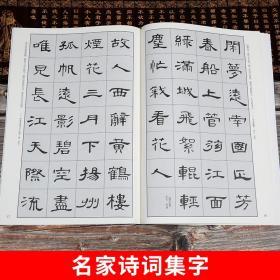 閑夢遠南國正芳
春船上管絃江面
綠滿城飛絮輥輕
塵忙殺看花人
故人西辭黃鶴樓
煙花三月下揚州
孤帆遠影碧空盡
唯見長江天際流
名家诗词集字